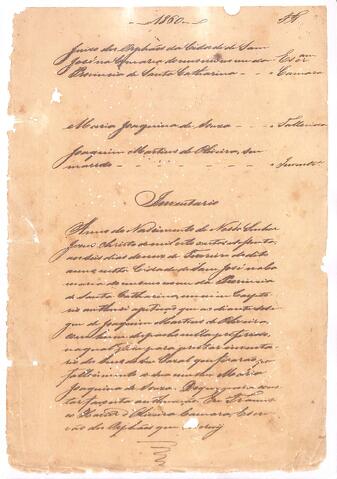 1860
Juizo dos Orphãos da Cidade de Sam
José na Comarca do mesmo nome da Escram
Provincia de Santa Catharina Camara
Maria Joaquina de Souza Fallecida
Joaquim Martins de Oliveira, seu
marido Invente
Inventario
Anno do Nascimento de Nosso Senhor
Jesus Christo de mil oito centos e sessenta,
aos dois dias do mez de Fevereiro do dito
anno, nesta Cidade de Sam José na Co
marca do mesmo nome da Provincia
de Santa Catharina, em meu Carto
rio autuei a petição que ao diante se
gue de Joaquim Martins de Oliveira,
com hum despacho nella proferido,
na qual pede para prestar inventa
rio dos bens do seu Casal que ficarão por
fallecimento de sua mulher Maria
Joaquina de Souza. De que para cons
tar faço esta autuação. Eu Francis
co Xavier d'Oliveira Camara, Escri
vão dos Orphãos que escrevy